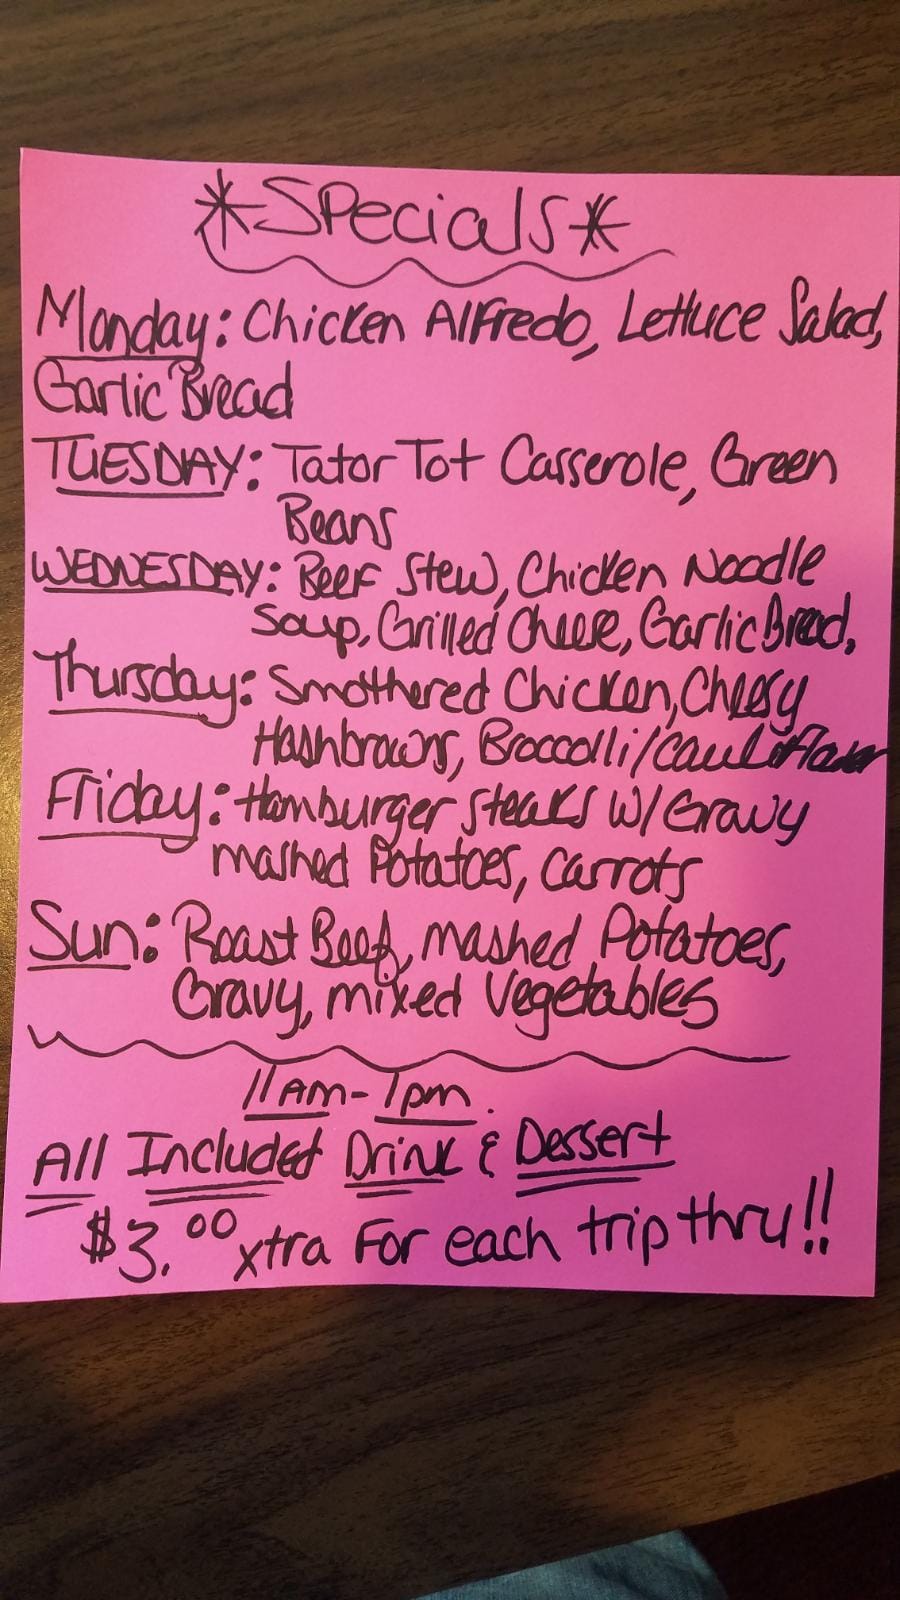 *Specials*
Monday: Chicken Alfredo, Lettuce Salad,
Garlic Bread
TUESDAY: Tator Tot Casserole, Green
Beans
WEDNESDAY: Beef Stew, Chicken Noodle
Soup, Grilled Cheese, Garlic Bread,
Thursday: Smothered Chicken, Cheesy
Hashbrowns, Broccolli/Cauliflower
Friday: Hamburger Steaks w/ Gravy
mashed Potatoes, Carrots
Sun: Roast Beef, mashed Potatoes,
Gravy, mixed Vegetables
11am-1pm.
All Included Drink & Dessert
$3.00 xtra For each trip thru!!